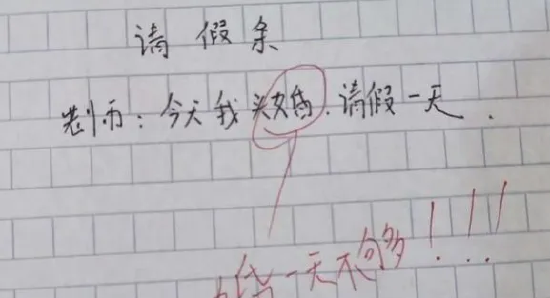 请假条
老师：今天我头婚.请假一天.
婚一天不够！！！